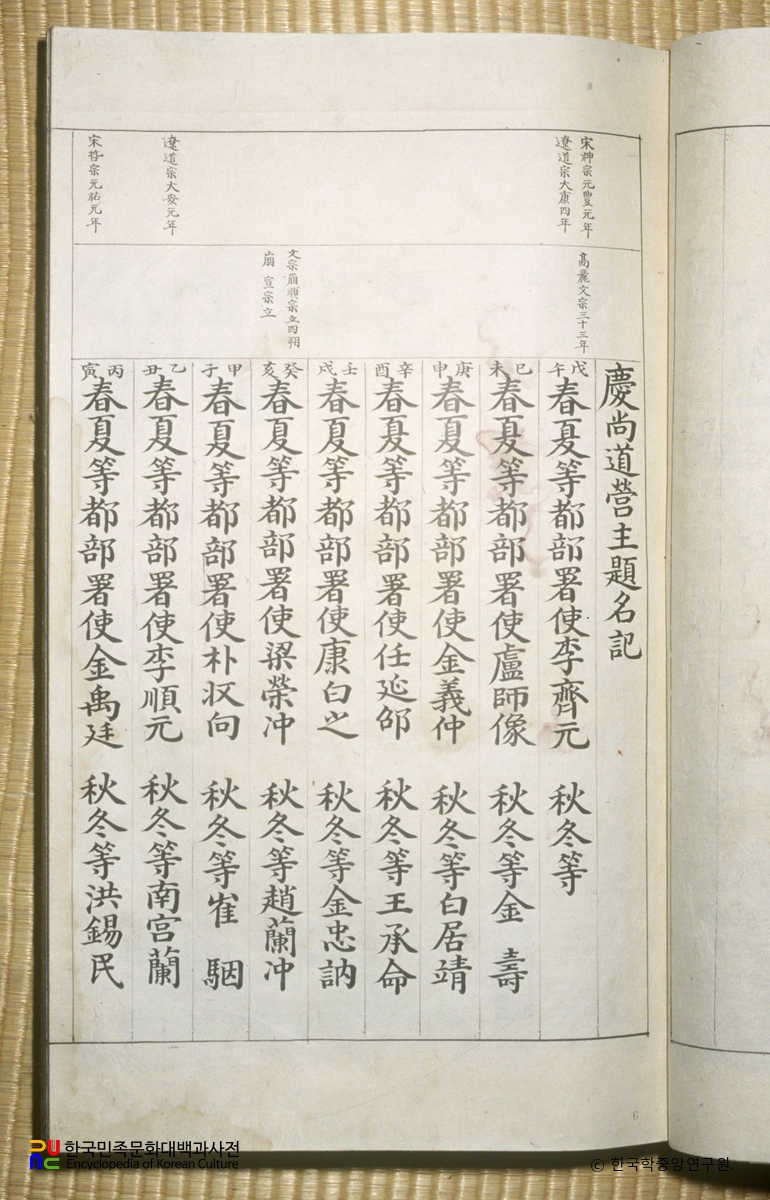 慶尚道營主題名記
宋神宗元豐元年
遼道宗大康四年
高麗文宗三十三年
戊午
春夏等都部署使李齊元 秋冬等
己未
春夏等都部署使盧師像 秋冬等金 壽
庚申
春夏等都部署使金義仲 秋冬等白居靖
辛酉
春夏等都部署使任延邵 秋冬等王承命
壬戌
春夏等都部署使康白之 秋冬等金忠訥
文宗崩順宗立四朔
崩 宣宗立
癸亥
春夏等都部署使梁榮冲 秋冬等趙蘭冲
甲子
春夏等都部署使朴向 秋冬等崔 駰
遼道宗大安元年
乙丑
春夏等都部署使李順元 秋冬等南宮蘭
宋哲宗元祐元年
丙寅
春夏等都部署使金禹廷 秋冬等洪錫民
6
한국민족문화대백과사전
Encyclopedia of Korean Culture
© 한국학중앙연구원